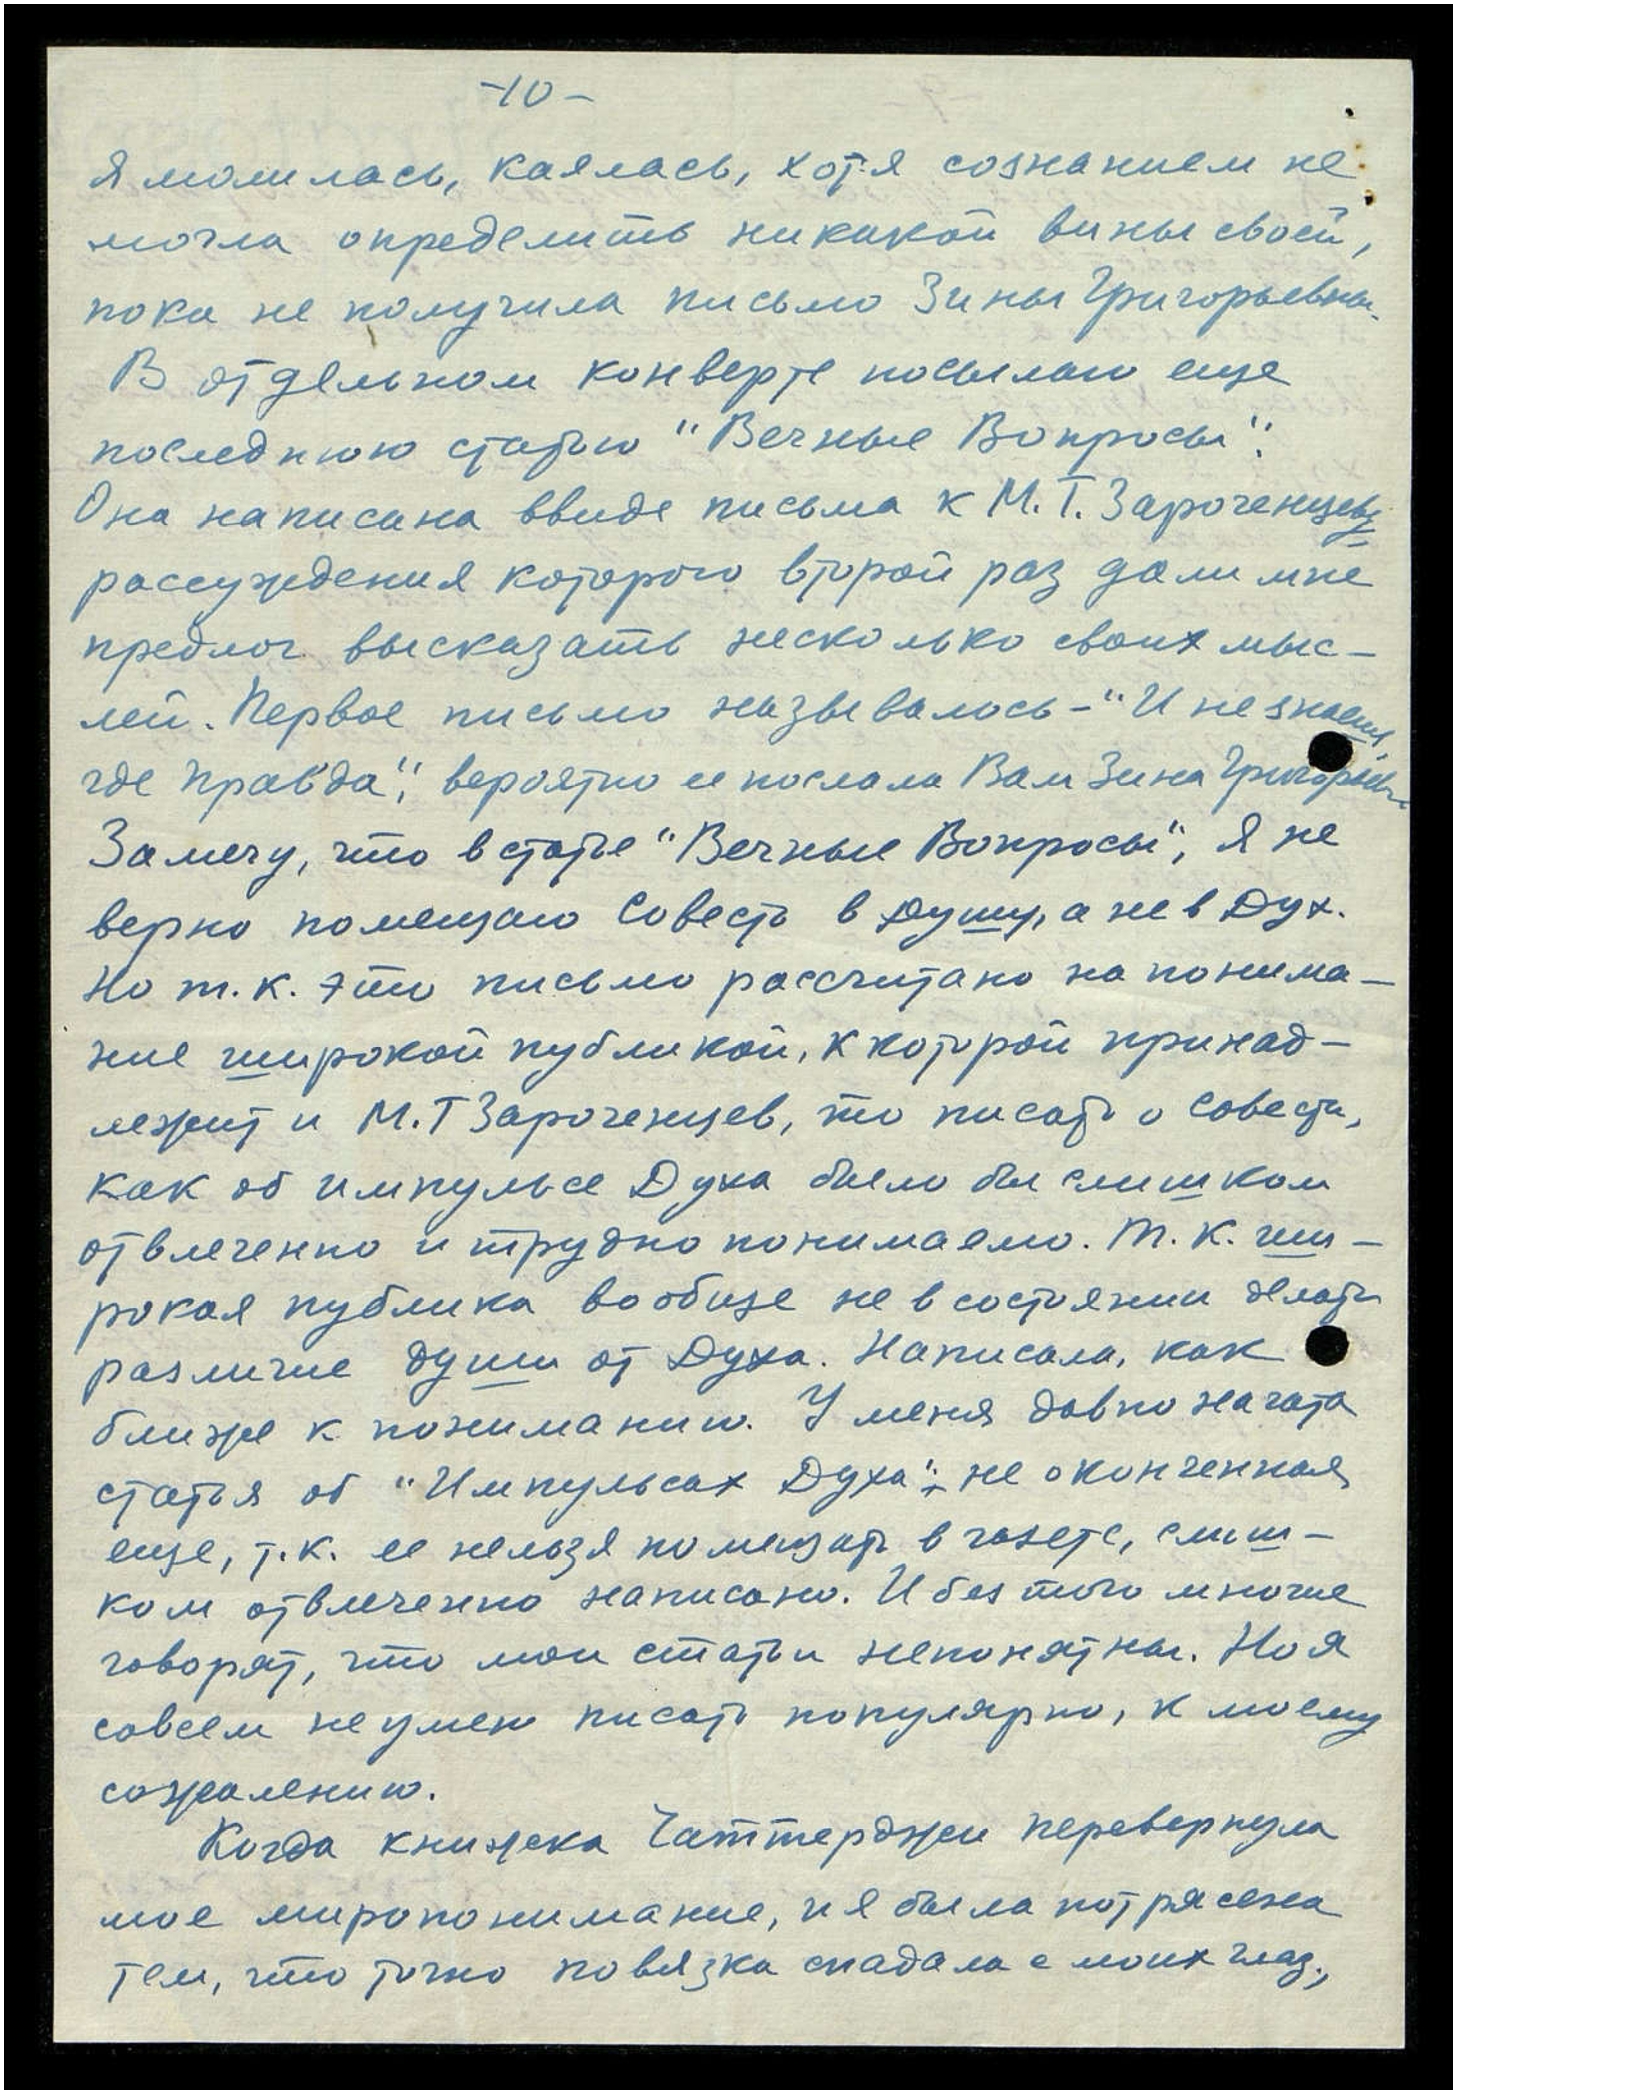 -10-
Я молилась, каялась, хотя сознанием не
могла определить никакой вины своей,
пока не получила письмо Зины Григорьевны.
В отдельном конверте посылаю еще
последнюю статью "Вечные Вопросы".
Она написана ввиде письма к М.Т. Зароченцеву
рассуждения которого второй раз дали мне
предлог высказать несколько своих мыс-
лей. Первое письмо называлось - "И не знаешь,
где Правда", вероятно ее послала Вам Зина Григорьевна
Замечу, что в статье "Вечные Вопросы", я не
верно помещаю Совесть в душу, а не в Дух.
Но т.к. это письмо рассчитано на понима-
ние широкой публикой, к которой принад-
лежит и М.Т Зароченцев, то писать о Совести,
как об импульсе Духа было бы слишком
отвлеченно и трудно понимаемо. Т.к. ши-
рокая публика вообще не в состоянии делать
различие души от Духа. Написала, как
ближе к пониманию. У меня давно начата
статья об "Импульсах Духа", не оконченная
еще, т.к. ее нельзя помещать в газете, слиш-
ком отвлеченно написано. И без того многие
говорят, что мои статьи непонятны. Но я
совсем не умею писать популярно, к моему
сожалению.
Когда книжка Чаттерджи перевернула
мое миропонимание, и я была потрясена
тем, что точно повязка спадала с моих глаз,